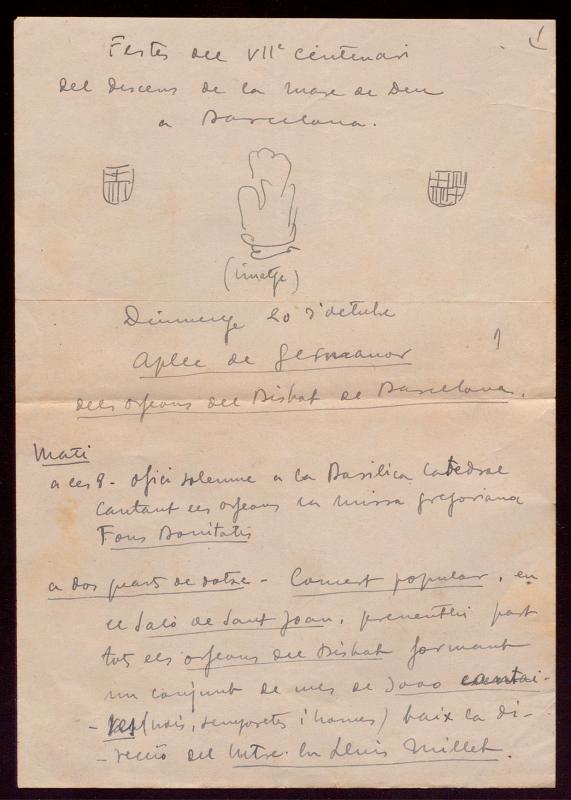 1
Festes del VIIè centenari
del descens de la Mare de Deu
a Barcelona.
(imatge)
Diumenge 20 d'octubre
Aplec de Germanor
dels orfeons del Bisbat de Barcelona.
Matí
a les 9 - Ofici solemne a la Basilica Catedral
cantant els orfeons la missa gregoriana
Fons Bonitatis
a dos quarts de dotze - Concert popular, en
el Saló de Sant Joan, prenenthi part
tots els orfeons del Bisbat formant
un conjunt de mes de 3000 cantai-
-res (nois, senyoretes i homes) baix la di-
-recció del Mtre. En Lluis Millet.